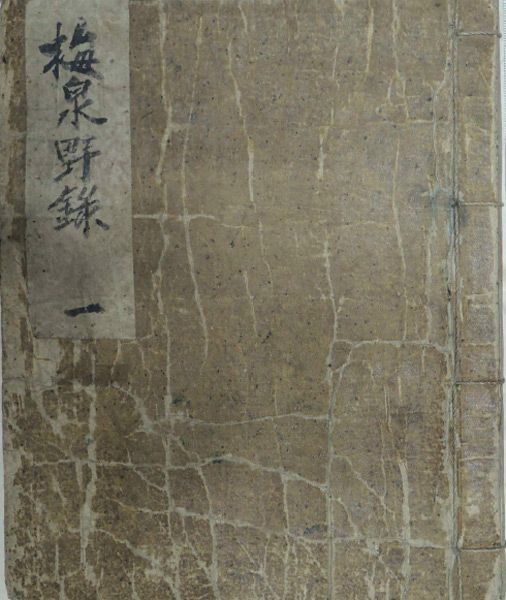 梅泉野錄
一